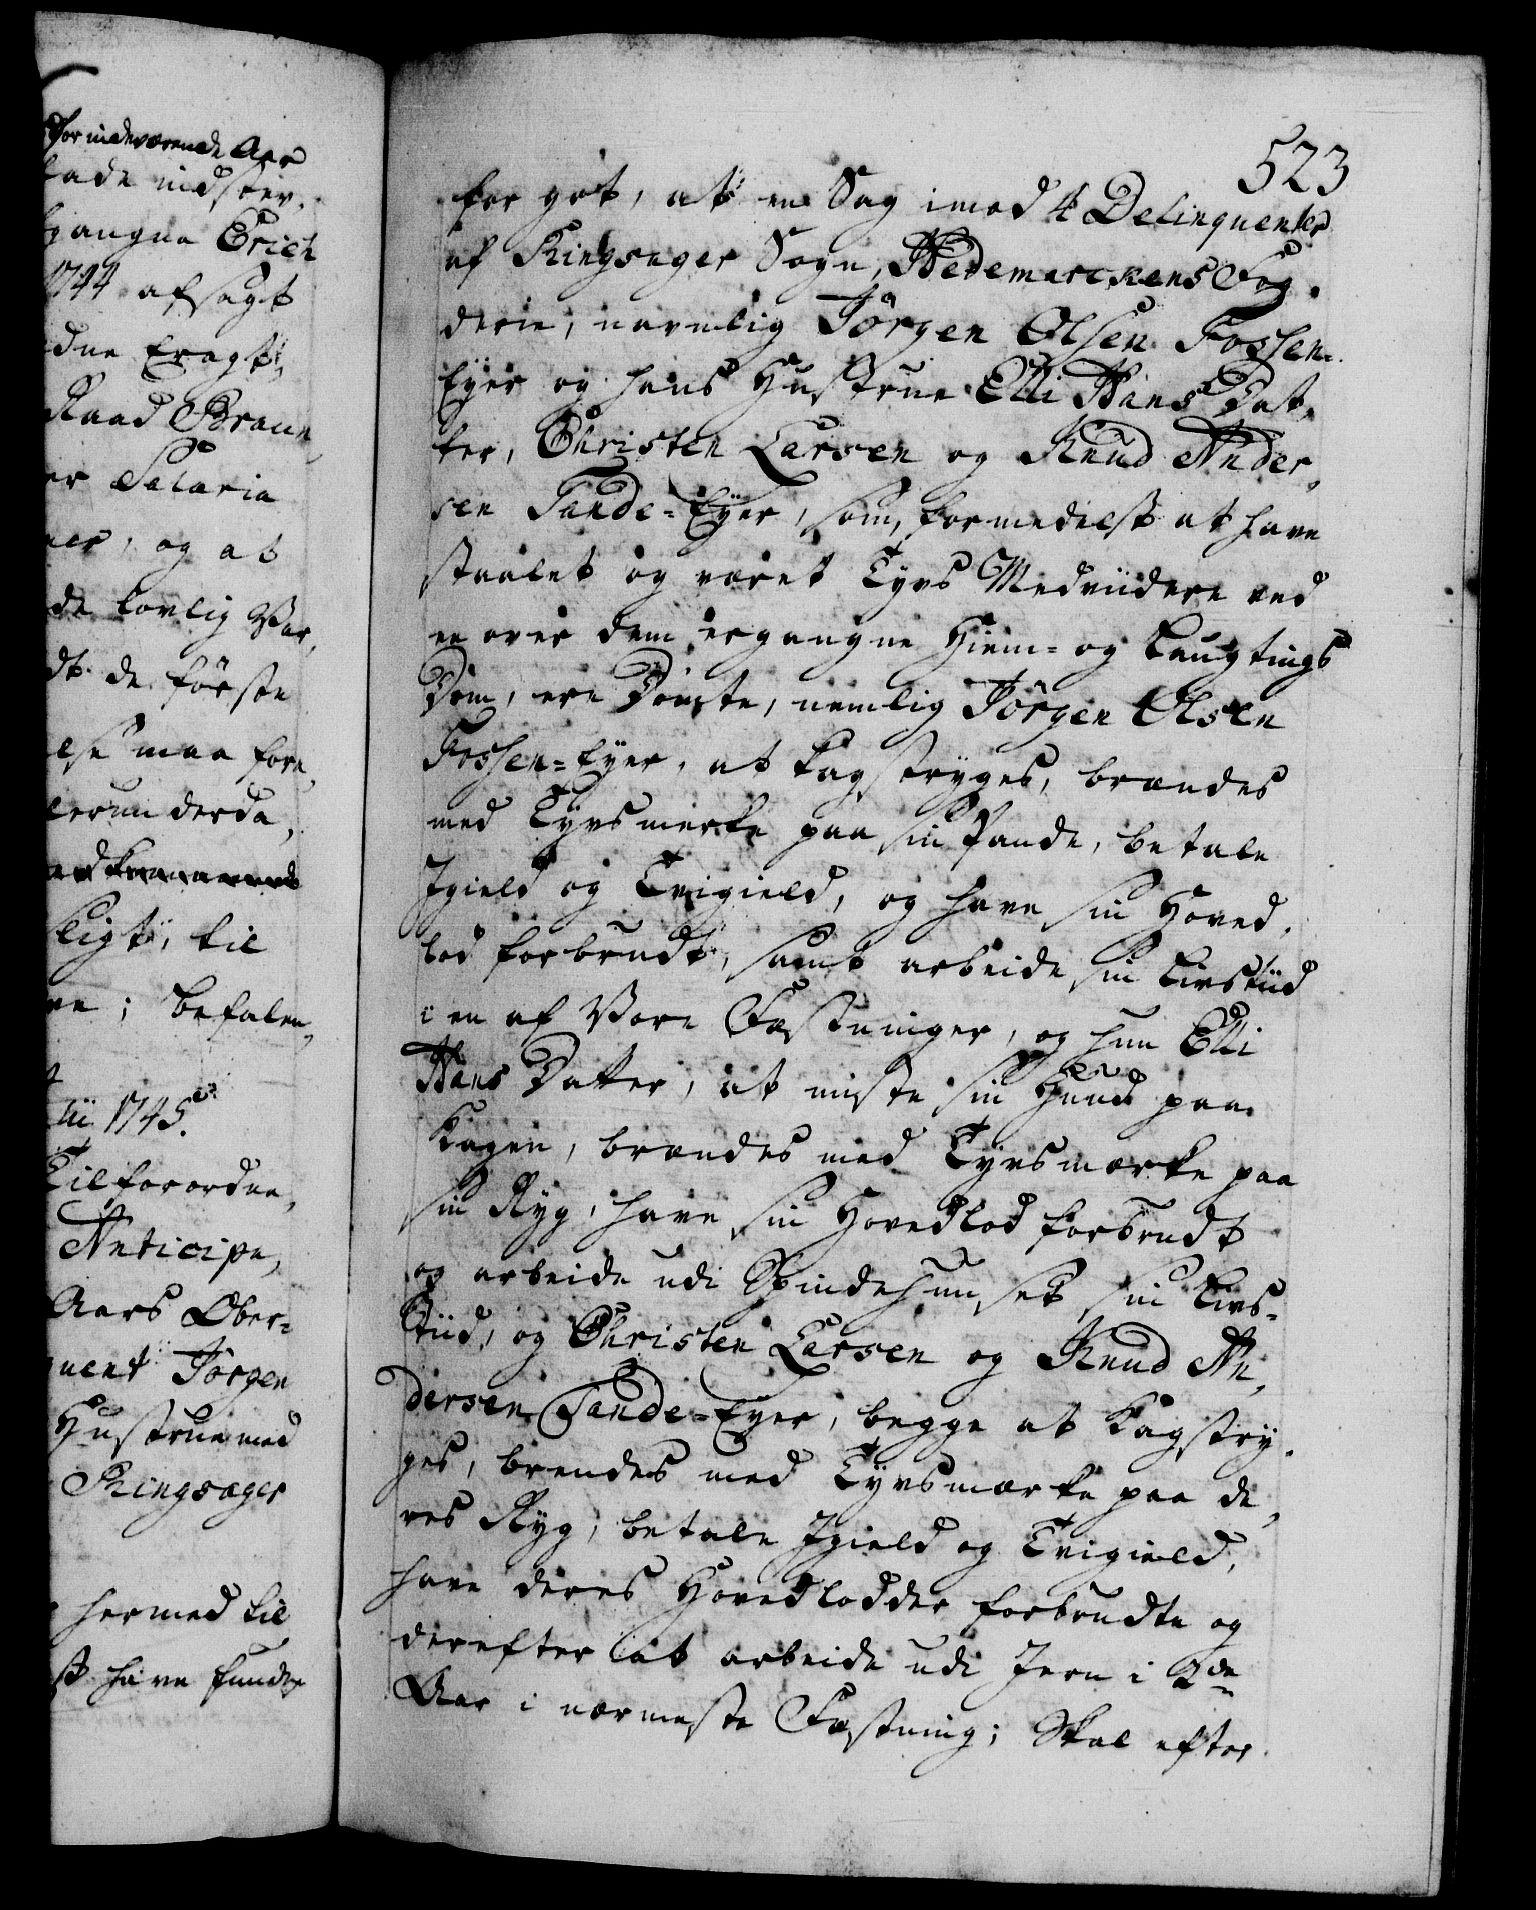 for indeværende Aar
lade indstev,
gangne Erich
1744 afsagt
dne Eragt,
Raad Braun,
er Salaria
ner, og at
de lovlig Var,
dt de förste
else maa fore,
lerunderda,
ligt, til
re; befalen,
lii 1745.
Tilforordne,
Anticipe,
Aars Ober-
quent Törgen
Hustrue med
Ringsager
hermed til
st have funde
523
for got, at en Sag imod 4 Delinquenter
af Ringsager Sogn, Hedemarckens Fog,
derie, navnlig Jörgen Olsen Fossen-
Eyer og hans Hustrue Elli Hans Dat,
ter, Christen Larsen og Knud Ander,
sen Sande-Eyer, som, formedelst at have
staalet og været Tyvs Medviidere ved
en over dem ergangne Hiem- og Laugtings
Dom, ere Dömte, nemlig Jörgen Olsen
Fossen-Eyer, at kagstryges, brændes
med Tyvsmerke paa sin Pande, betale
Igield og Tvigield, og have sin Hoved,
lod forbrudt, samt arbeide sin Livstiid
i en af Vore Fæstninger, og hun Elli
Hans Datter, at miste sin Huud paa
Kagen, brændes med Tyvsmærke paa
sin Ryg, have sin Hovedlod forbrudt
og arbeide udi Spindehuuset sin Livs-
Tiid, og Christen Larsen og Knud An,
dersen Sande-Eyer, begge at Kagstry,
ges, brendes med Tyvsmærke paa de,
res Ryg, betale Igield og Tvigield,
have deres Hovedlodder forbrudte og
derefter at arbeide udi Jern i 2de
Aar i nærmeste Fæstning; Skal efter